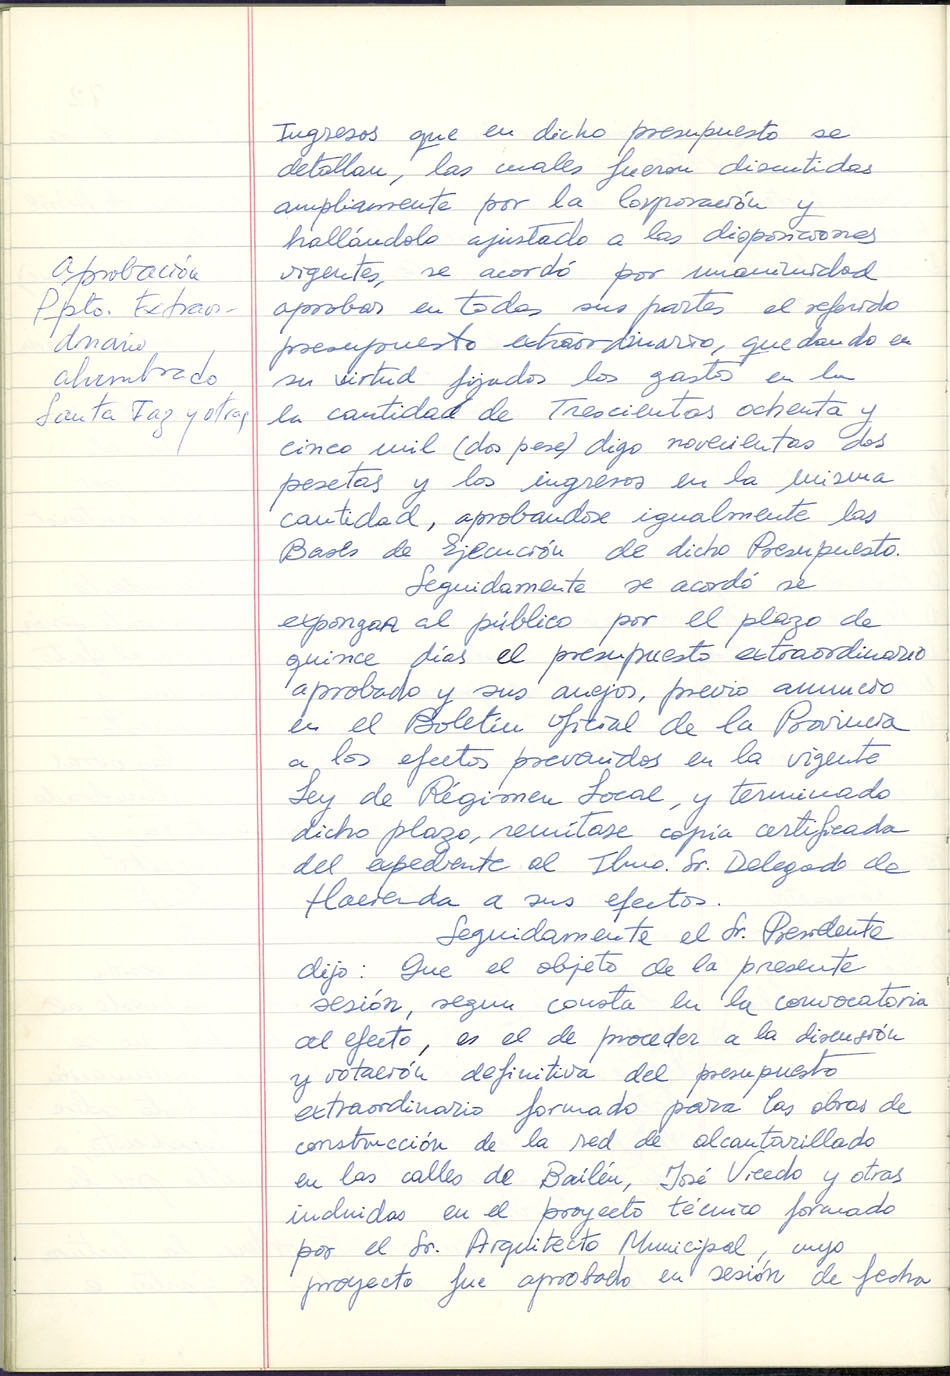 Ingresos que en dicho presupuesto se
detallan, las cuales fueron discutidas
ampliamente por la Corporación y
hallándolo ajustado a las disposiciones
vigentes, se acordó por unanimidad
aprobar en todas sus partes el referido
presupuesto extraordinario, quedando en
su virtud fijados los gasto en la
la cantidad de Trescientas ochenta y
cinco mil (dos pese) digo novecientas dos
pesetas y los ingresos en la misma
cantidad, aprobandose igualmente las
Bases de Ejecución de dicho Presupuesto.
Seguidamente se acordó se
expongan al público por el plazo de
quince días el presupuesto extraordinario
aprobado y sus anejos, previo anuncio
en el Boletín Oficial de la Provincia
a los efectos prevenidos en la vigente
Ley de Régimen Local, y terminado
dicho plazo, remítase copia certificada
del expediente al Ilmo. Sr. Delegado de
Hacienda a sus efectos.
Seguidamente el Sr. Presidente
dijo: Que el objeto de la presente
sesión, segun consta en la convocatoria
al efecto, es el de proceder a la discusión
y votación definitiva del presupuesto
extraordinario formado para las obras de
construcción de la red de alcantarillado
en las calles de Bailén, José Vicedo y otras
incluidas en el proyecto técnico formado
por el Sr. Arquitecto Municipal, cuyo
proyecto fue aprobado en sesión de fecha
Aprobación
Ppto. Extraor-
dinario
alumbrado
Santa Faz y otras